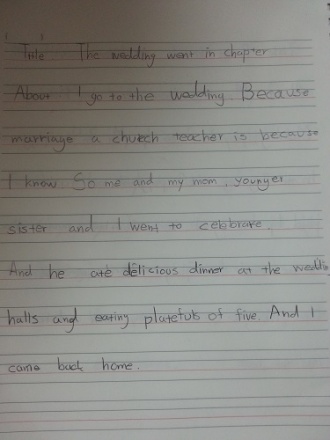 Title The wedding went in chapter
About I go to the wedding Because
marriage a church teacher is because
I know So me and my mom, younger
sister and I went to celebrate.
And he ate delicious dinner at the wedding
halls and eating platefuls of five And I
came back home.